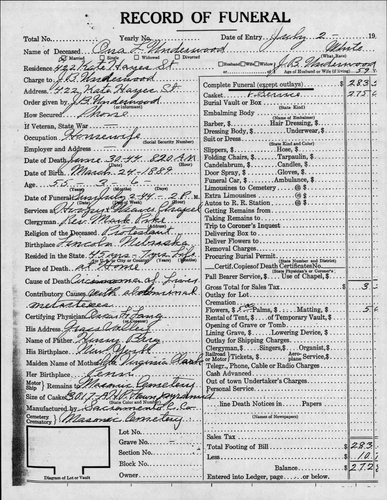 RECORD OF FUNERAL
Total No. Yearly No. Date of Entry July 2 - 19
Name of Deceased Ora L. Underwood White
(What Race)
Married Single Widowed Divorced
Residence 422 Kate Hayes St. Husband Wife Widow or J.B. Underwood
Charge to J.B. Underwood Age of Husband or Wife 59
Address 422 Kate Hayes St
Order given by J.B. Underwood
How Secured Phone
If Veteran, State War
Occupation Housewife
(Social Security Number)
Employer and Address
Date of Death June 30-44. 8:20 A.M.
Date of Birth March 24-1889
Age 55 - 3 - 6
Date of Funeral July 2-44 - 2 P.
Services at Chapel
Clergyman Rev. Mark
Religion of the Deceased Protestant
Birthplace Lincoln Nebraska
Resided in the State 45
Place of Death at Home
Cause of Death Carcinoma of Liver
Contributory Causes with abdominal
metastases
Certifying Physician
His Address Grass Valley
Name of Father Henry
His Birthplace New York
Maiden Name of Mother Virginia Clark
Her Birthplace Penn.
Motor Ship Remains to Masonic Cemetery
Size of Casket
(State Color and Number)
Manufactured by Sacramento C. Co.
Cemetery Crematory Masonic Cemetery
Lot No.
Grave No.
Section No.
Block No.
Owner
Diagram of Lot or Vault
Complete Funeral (except outlays) $ 283
Casket & Service 275
Burial Vault or Box
(State Kind)
Embalming Body
Barber, $ Hair Dressing, $
Dressing Body, $ Underwear, $
Suit or Dress
(State Kind and Color)
Slippers, $ Hose, $
Folding Chairs, $ Tarpaulin, $
Candelabrum, $ Candles, $
Door Spray, $ Gloves, $
Funeral Car, $ Ambulance, $
Limousines to Cemetery @ $
Extra Limousines @ $
Autos to R. R. Station @ $
Getting Remains from
Taking Remains to
Trip to Coroner's Inquest
Delivering Box to
Deliver Flowers to
Removal Charges
Procuring Burial Permit
Certified Copies of Death Certificates No.
(State Physician's or Coroner's)
Pall Bearer Service, $ Use of Chapel, $
Gross Total for Sales Tax $
Outlay for Lot
Cremation
Flowers, $ Palms, $ Matting, $
Rent of Tent, $ of Temporary Vault, $
Opening of Grave or Tomb
Lining Grave, $ Lowering Device, $
Outlay for Shipping Charges
Clergyman, $ Singers, $ Organist, $
Railroad or Motor Tickets, $ Aeroplane Service, $
Telegr., Phone, Cable or Radio Charges
Cash Advanced
Out of town Undertaker's Charges
Personal Service
line Death Notices in Papers
(Names of Newspapers)
Sales Tax
Total Footing of Bill $ 283
Less 10
Balance $ 272
Entered into Ledger, page or below.